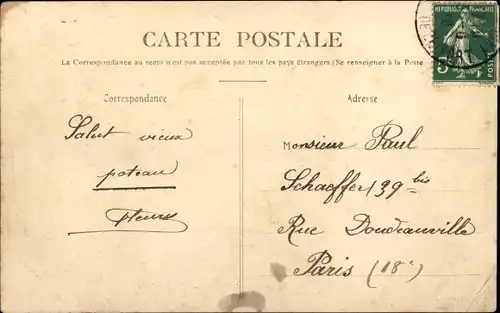 CARTE POSTALE
La Correspondance au recto n'est pas acceptée par tous les pays étrangers (Se renseigner à la Poste
REPUBLIQUE FRANÇAISE
5
POSTES
Correspondance
Salut vieux
poteau
Fleury
Adresse
Monsieur Paul
Schaeffer 39 bis
Rue Doudeauville
Paris (18e)